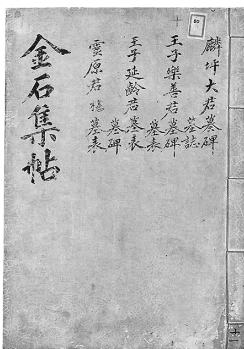 麟坪大君墓碑
墓誌
王子樂善君墓碑
墓表
王子延齡君墓表
墓碑
靈原君櫶墓表
金石集帖